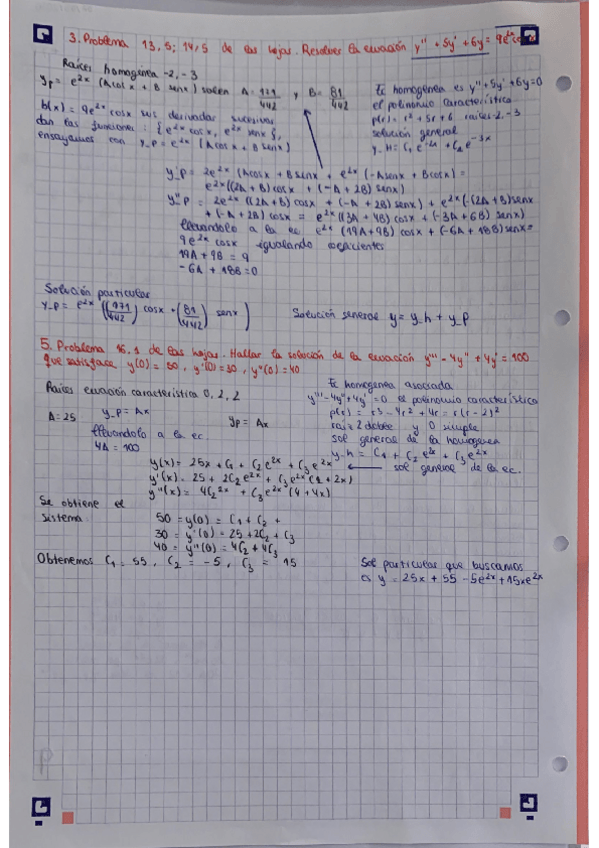 3. Problema 13,5; 14,5 de las hojas. Resolver la ecuación y'' + 5y' + 6y = 9e^2x cosx
Raíces homogenea -2, -3
y_p = e^2x (A cos x + B senx) salen A = 171/442 y B = 81/442
b(x) = 9e^2x cosx sus derivadas sucesivas
dan las funciones: {e^2x cosx, e^2x senx},
ensayamos con y_p = e^2x (A cosx + B senx)
Ec homogenea es y'' + 5y' + 6y = 0
el polinomio característico
p(r) = r² + 5r + 6 raices -2, -3
solución general
y_H = C1 e^-2x + C2 e^-3x
y_p = 2e^2x (A cosx + B senx + e^2x (-A senx + B cosx) =
e^2x ((2A + B) cosx + (-A + 2B) senx)
y''_p = 2e^2x ((2A + B) cosx + (-A + 2B) senx) + e^2x (-(2A + B) senx
+ (-A + 2B) cosx = e^2x ((3A + 4B) cosx + (-3A + 6B) senx)
llevandolo a la ec e^2x (19A + 9B) cosx + (-6A + 18B) senx =
9e^2x cosx igualando coeficientes
19A + 9B = 9
-6A + 18B = 0
Solución particular
y_p = e^2x ((171/442) cosx + (81/442) senx)
Solución general y = y_h + y_p
5. Problema 16.1 de las hojas. Hallar la solución de la ecuación y''' - 4y'' + 4y' = 100
que satisface y(0) = 50, y'(0) = 30, y''(0) = 40
Raíces ecuación característica 0, 2, 2
A = 25 y_p = Ax
yp = Ax
llevandolo a la ec.
4A = 100
Ec homogenea asociada
y''' - 4y'' + 4y' = 0 el polinomio característico
p(r) = r3 - 4r² + 4r = r(r - 2)²
raiz 2 doble y 0 simple
sol general de la homogenea
y_h = C1 + C2 e^2x + C3 e^2x
y(x) = 25x + C1 + C2 e^2x + C3 e^2x
sol general de la ec.
y'(x) = 25 + 2C2 e^2x + C3 e^2x (1 + 2x)
y''(x) = 4C2 ^2x + C3 e^2x (4 + 4x)
Se obtiene el
sistema:
50 = y(0) = C1 + C2 +
30 = y'(0) = 25 + 2C2 + C3
40 = y''(0) = 4C2 + 4C3
Obtenemos C1 = 55, C2 = -5, C3 = 15
Sol particular que buscamos
es y = 25x + 55 - 5e^2x + 15xe^2x